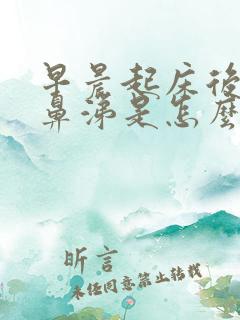 早晨起床後
鼻涕是怎麼
昕言
未經同意禁止轉載